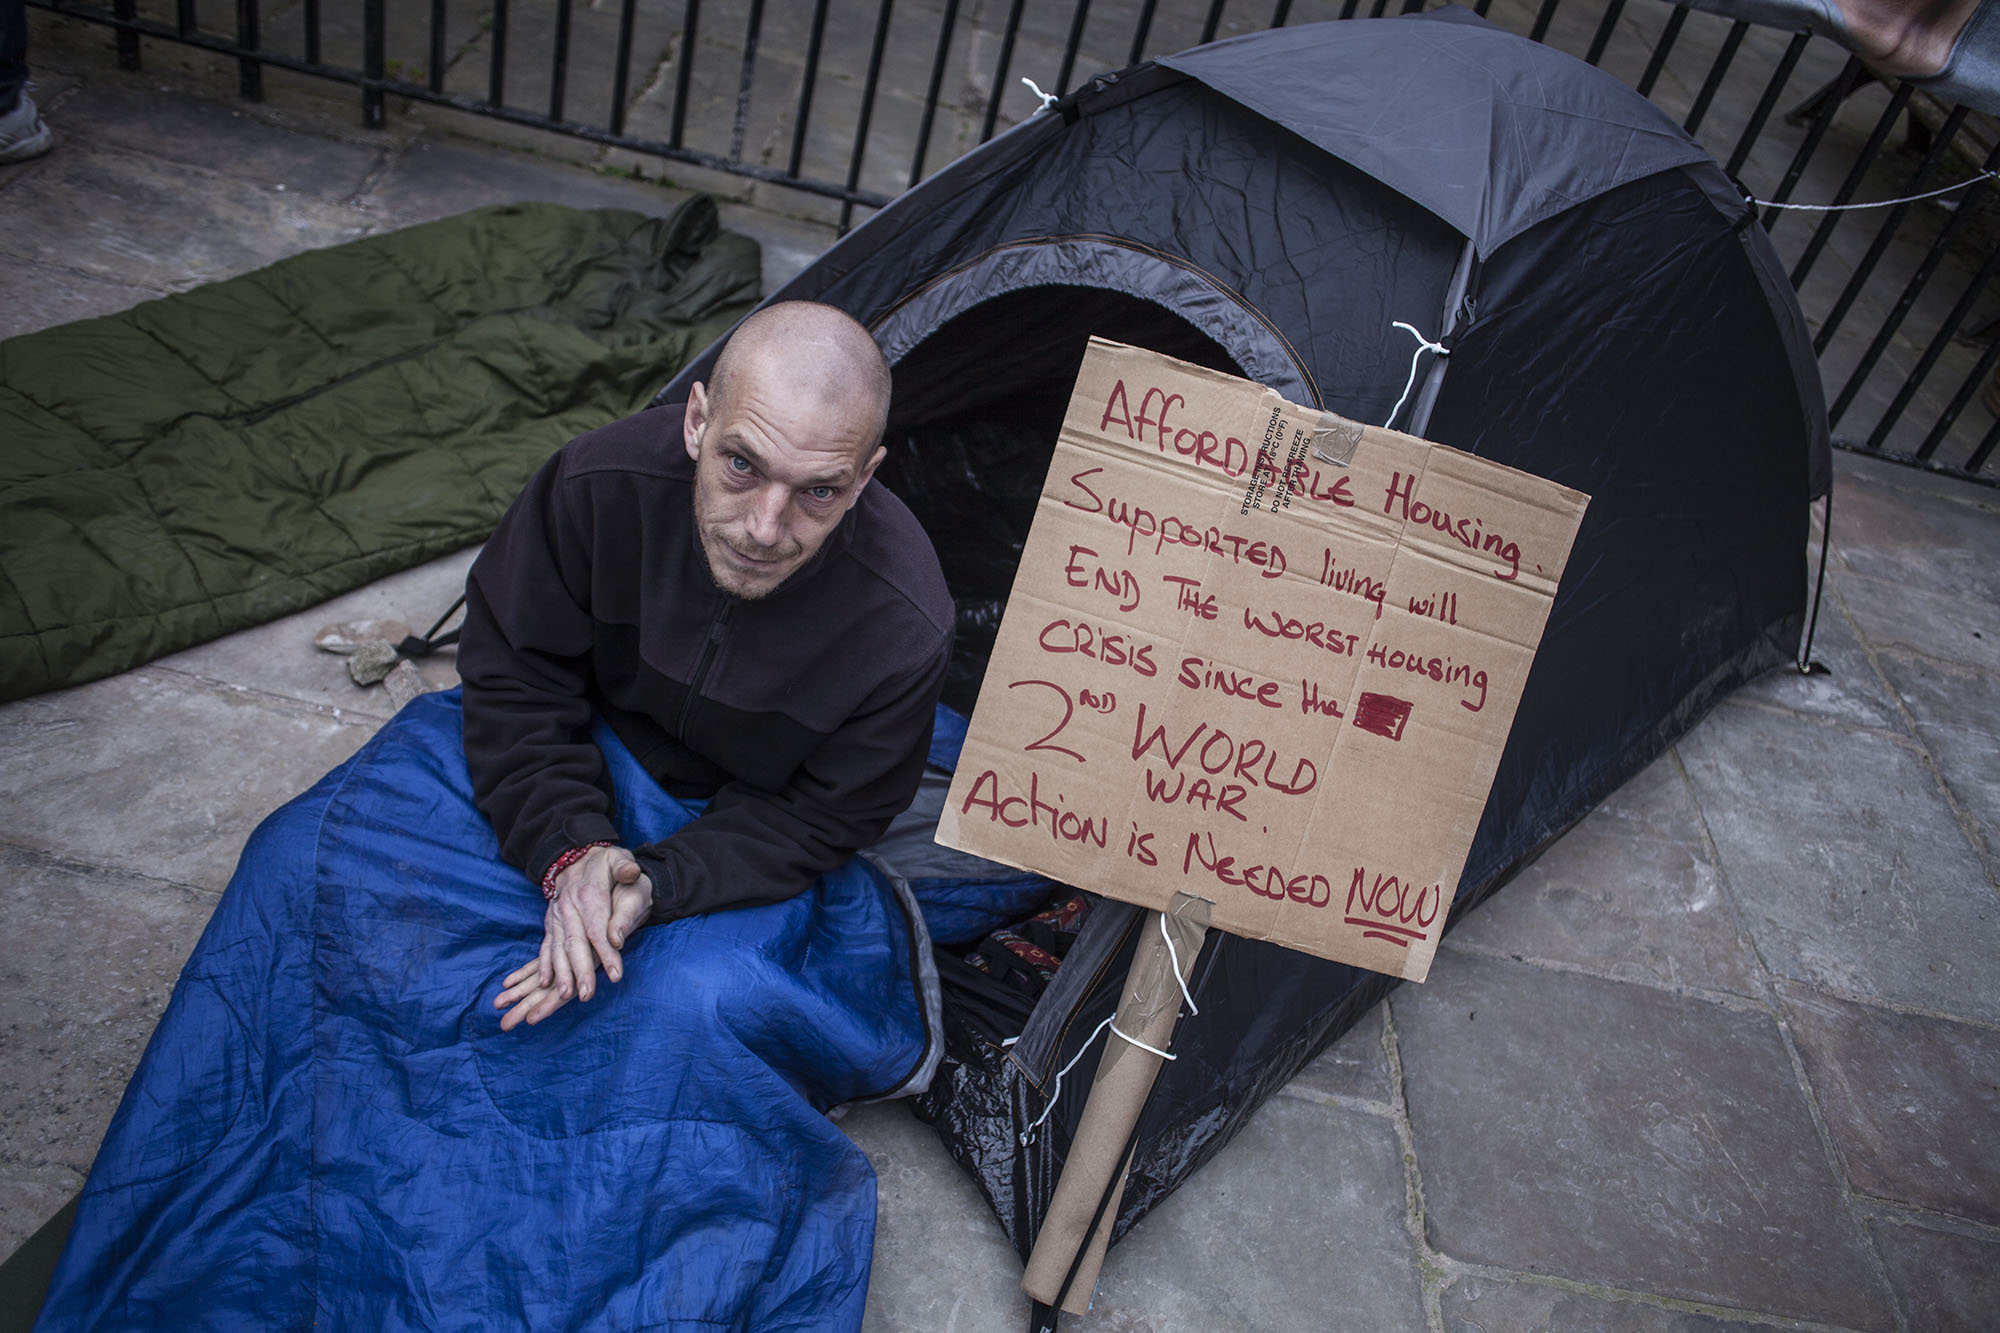 AffORDABLE Housing.
SuppORTED living will
END THE WORST Housing
CRISIS SINCE the
2ND WORLD
WAR.
Action is NEEDED NOW
STORAGE INSTRUCTIONS
STORE AT -18°C (0°F)
DO NOT RE-FREEZE
AFTER THAWING